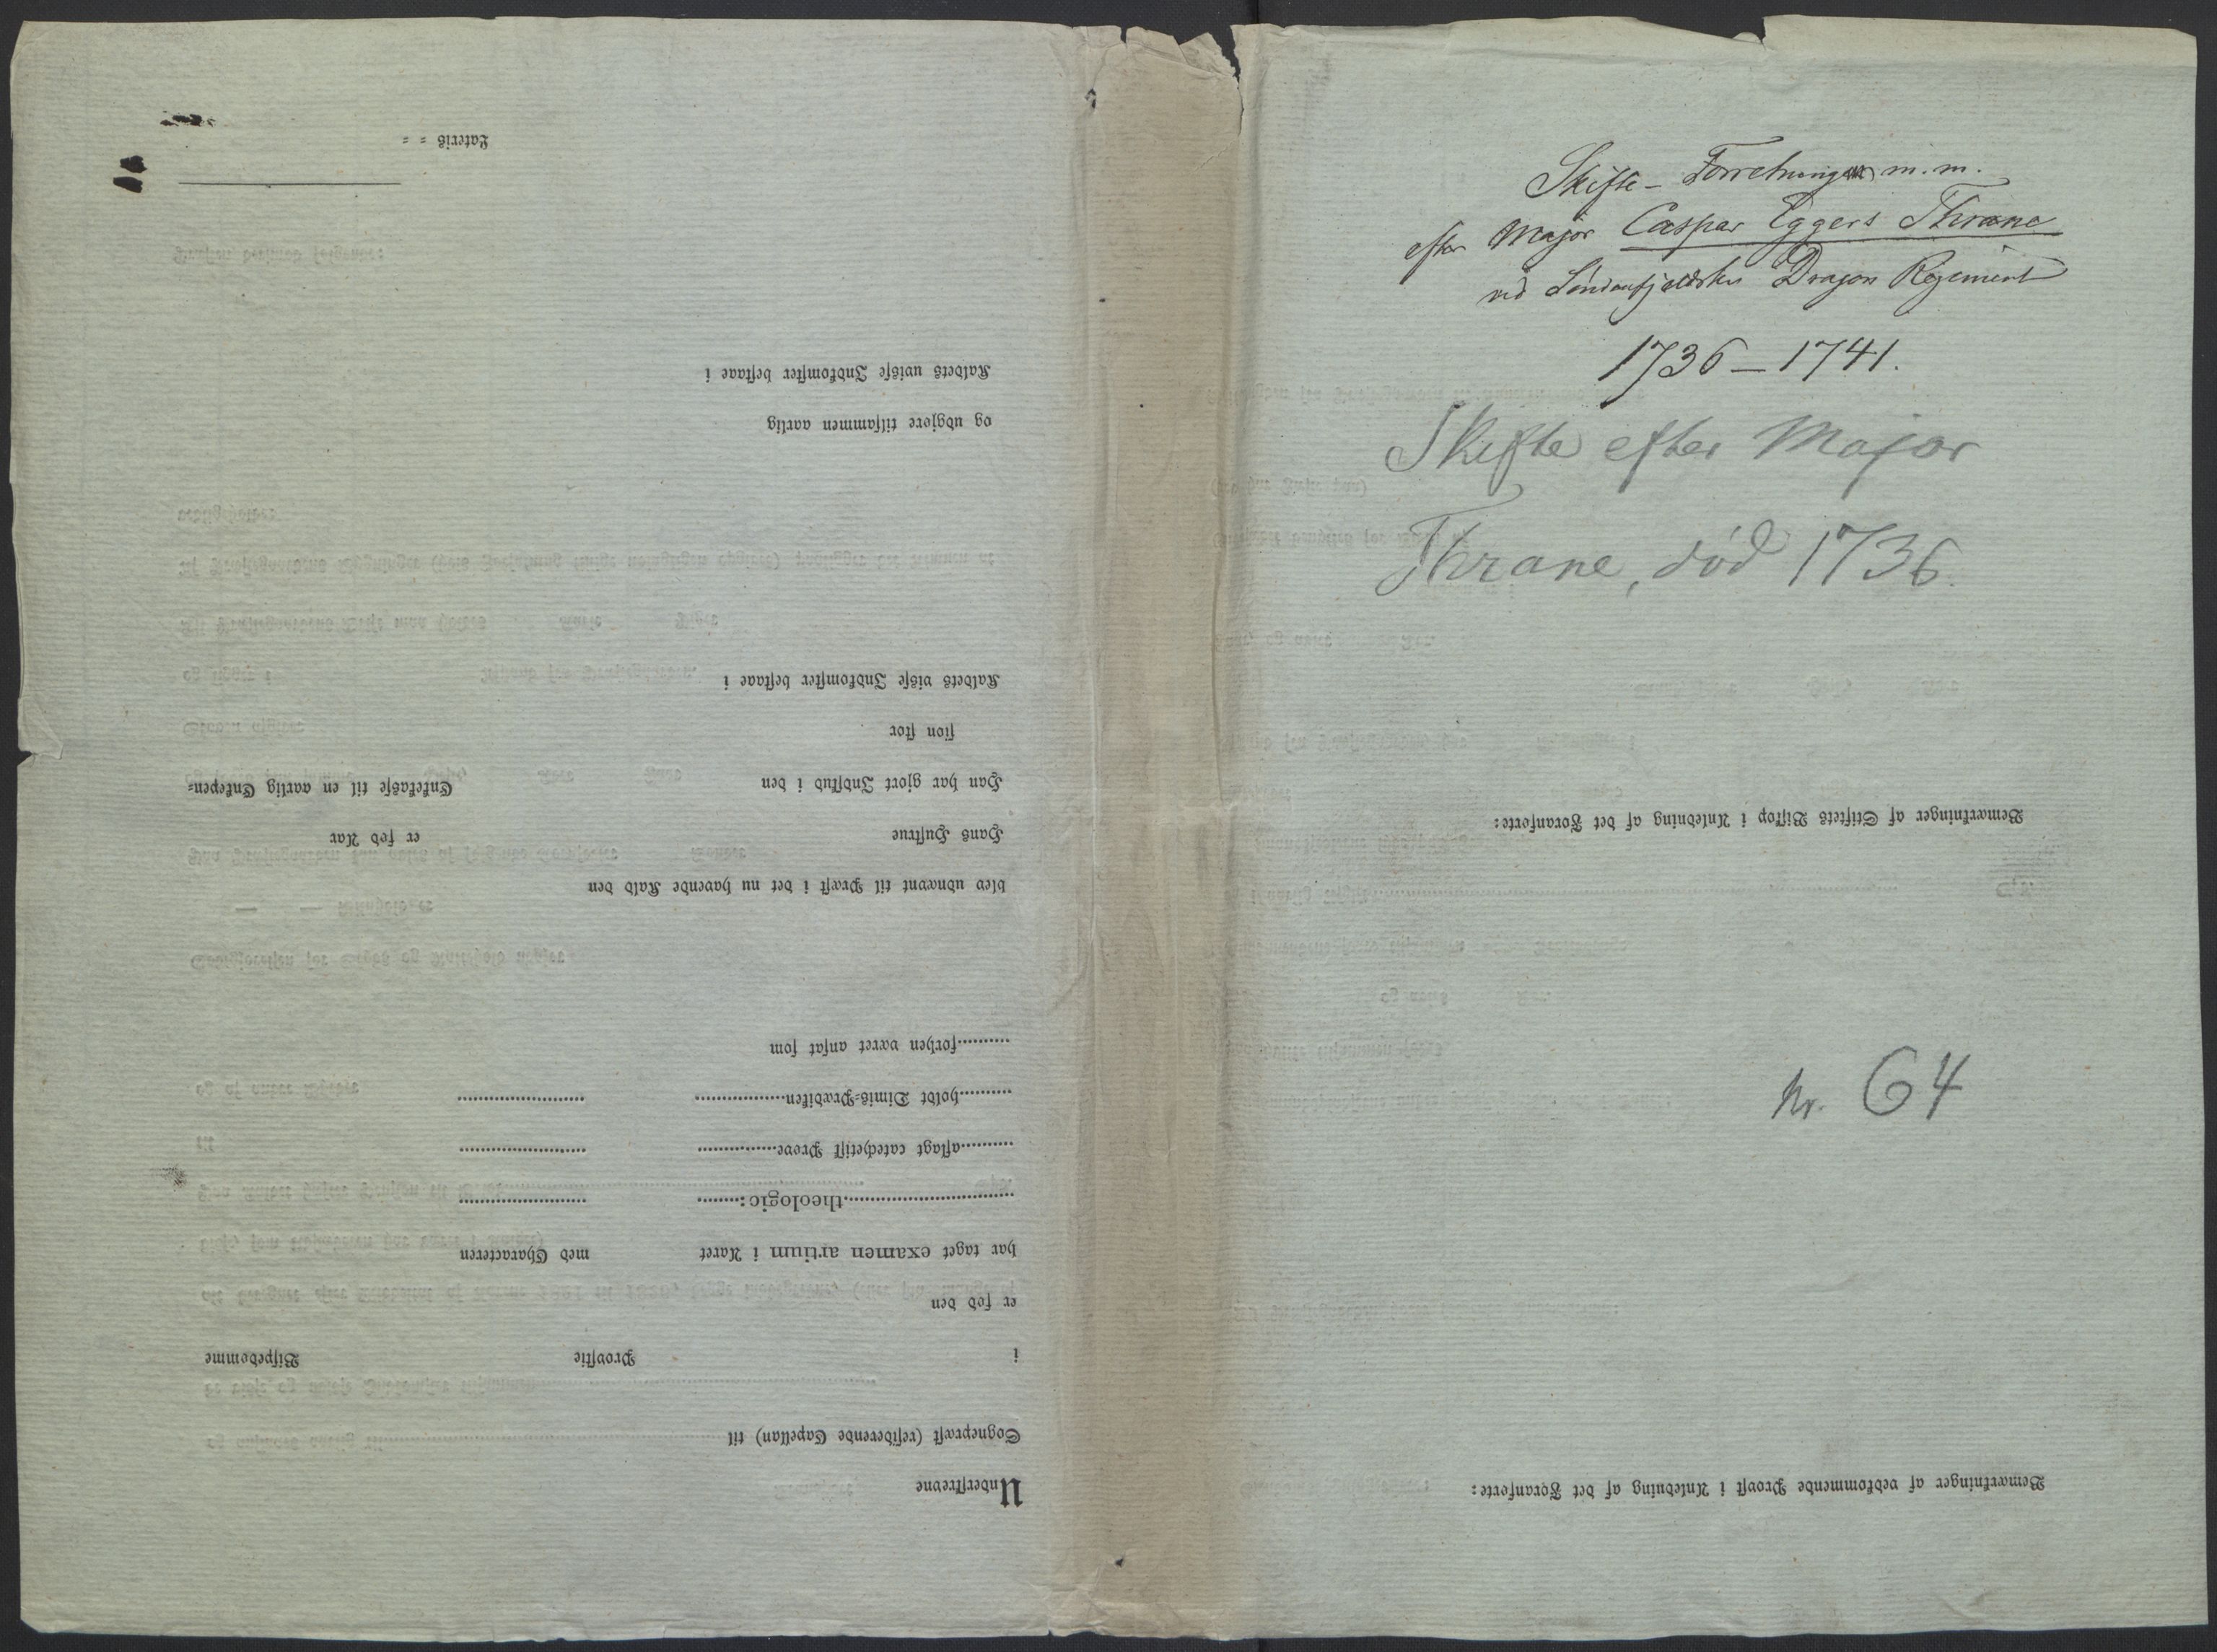 Skifte - Forretninger m. m.
efter Major Caspar Eggers Thrane
ved Søndenfjeldske Dragon Regiment
1736 - 1741.
Skifte efter Major
Thrane, død 1736.
Nr. 64
Bemærkninger af Stiftets Biskop i Anledning af det Foranførte:
Bemærkninger af vedkommende Provst i Anledning af det Foranførte:
Underskrevne
Sognepræst (residerende Capellan) til
i Provstie Bispedømme
er fød den
har taget examen artium i Aaret med Characteren
theologic:
aflagt catechetisk Prøve
holdt Dimis-Prædiken
forhen været ansat som
blev udnævnt til Præst i det nu havende Kald den
Hans Hustrue er fød Aar
Han har gjort Indskud i den Enkekasse til en aarlig Enkepen-
sion stor
Kaldets visse Indkomster bestaae i
og udgjøre tilsammen aarlig
Kaldets uvisse Indkomster bestaae i
Lateris